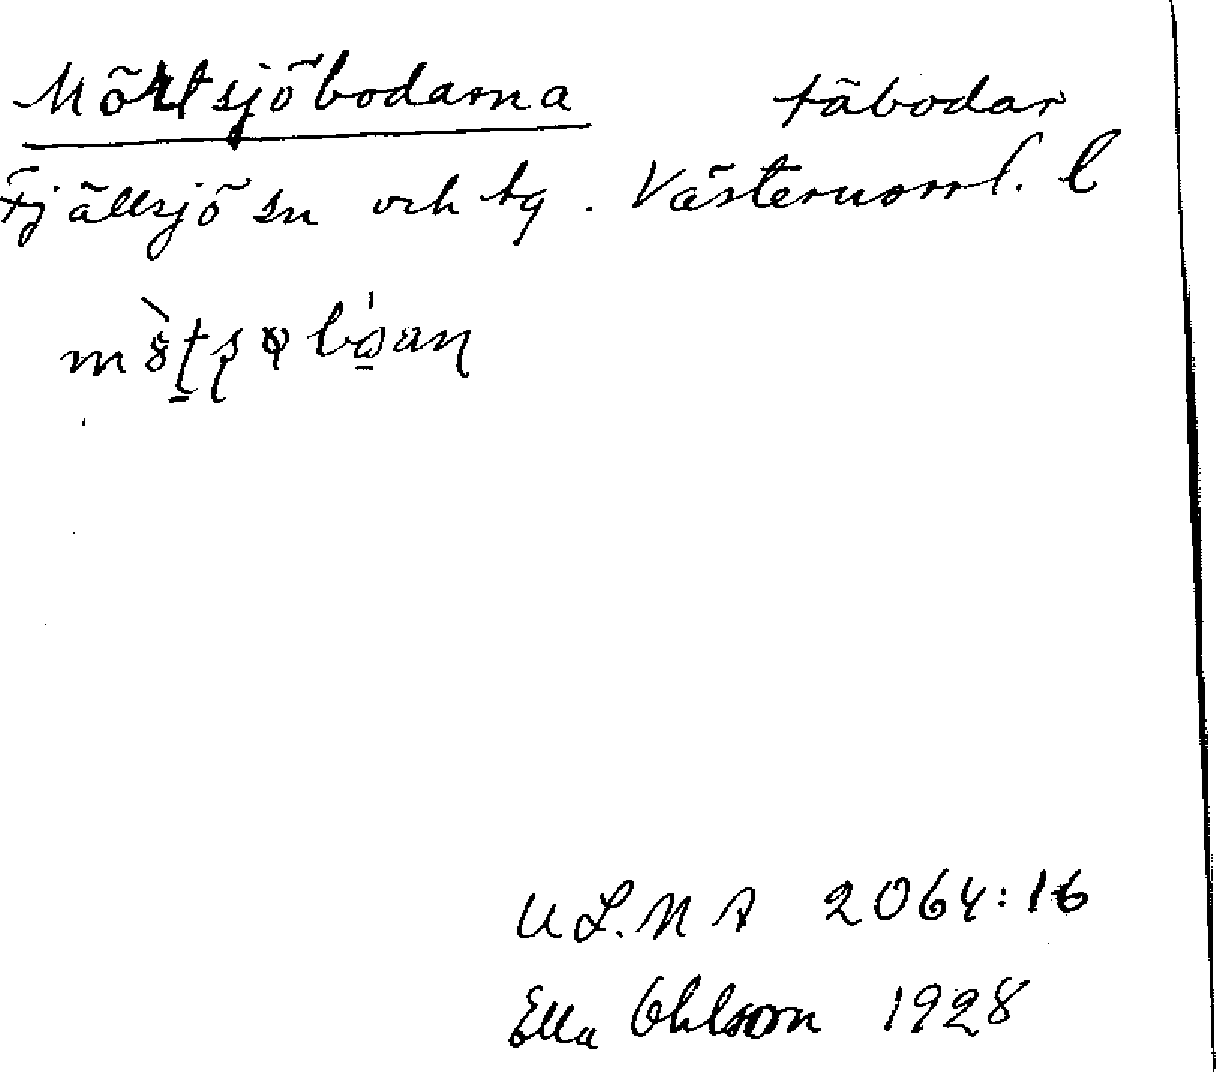 Mörtsjöbodarna täbodar
Fjällsjö sn och tg. Västernorrl. l
ULMA 2064:16
Ella Ohlson 1928